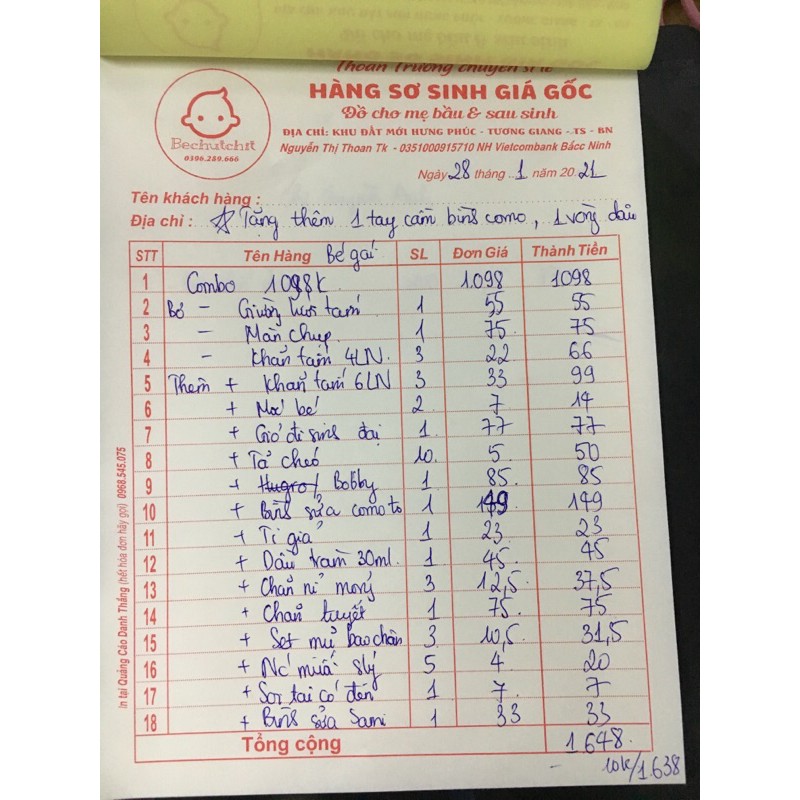 Thoan Trương chuyên sỉ lẻ
HÀNG SƠ SINH GIÁ GỐC
Đồ cho mẹ bầu & sau sinh
Bechutchit
0396.289.666
ĐỊA CHỈ: KHU ĐẤT MỚI HƯNG PHÚC - TƯƠNG GIANG - TS - BN
Nguyễn Thị Thoan Tk - 0351000915710 NH Vietcombank Bắcc Ninh
Ngày 28 tháng 1 năm 20.21
Tên khách hàng :
Địa chỉ : ☆ Tặng thêm 1 tay cầm bình como, 1 vòng dâu
STT Tên Hàng Bé gái SL Đơn Giá Thành Tiền
1 Combo 1098K 1.098 1098
2 Bỏ - Giường lưới tắm 1 55 55
3 - Màn chụp 1 75 75
4 - Khăn tắm 4LN 3 22 66
5 Thêm + Khăn tắm 6LN 3 33 99
6 + 2 7 14
7 + Giỏ đi sinh đại 1 77 77
8 + Tã chéo 10 5 50
9 + Hugro/ Bobby 1 85 85
10 + Bình sữa como to 1 149 149
11 + Ti giả 1 23 23
12 + Dầu tràm 30ml 1 45 45
13 + Chăn nỉ mỏng 3 12,5 37,5
14 + Chăn tuyết 1 75 75
15 + Set mũ bao chân 3 10,5 31,5
16 + 5 4 20
17 + tai có đèn 1 7 7
18 + Bình sữa Sami 1 33 33
Tổng cộng 1.648
10k/1.638
In tại Quảng Cáo Danh Thắng (hết hóa đơn hãy gọi) 0968.545.075